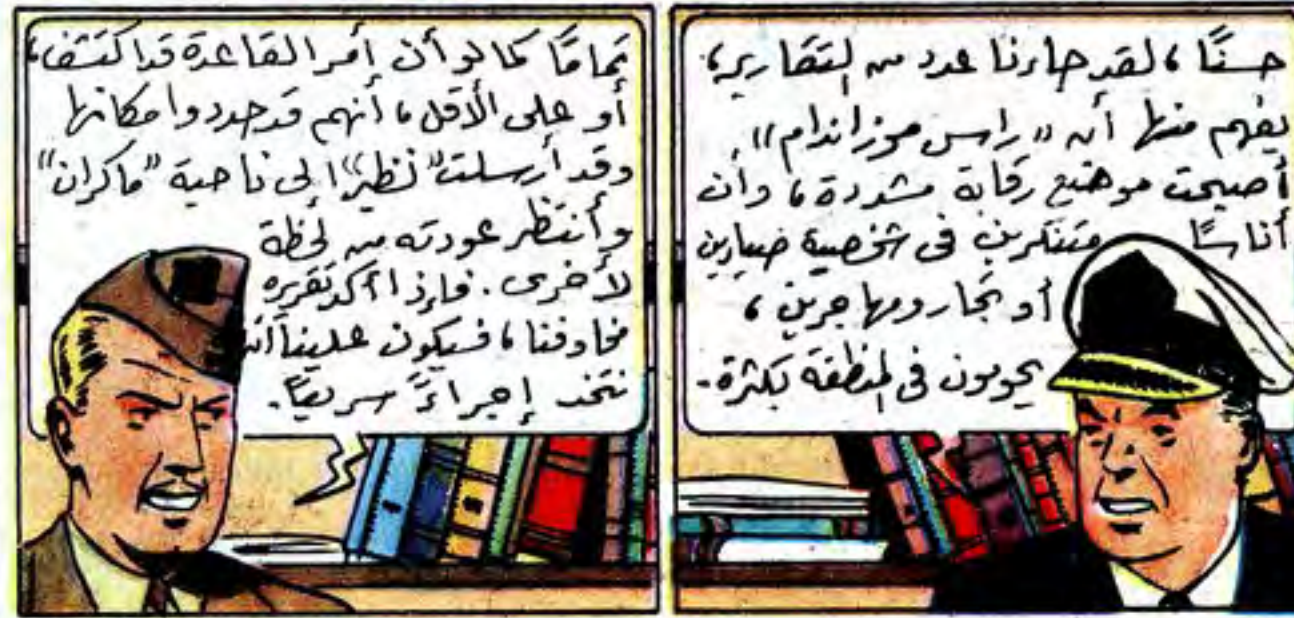 حسنًا، لقد جاءنا عدد من التقارير،
يفهم منها أن "راس موزاندام"
أصبحت موضع رقابة مشددة، وأن
أناسًا متنكرين في شخصية صيادين
أو تجار ومهاجرين،
يحومون في المنطقة بكثرة.
تمامًا كما لو أن أمر القاعدة قد اكتشف،
أو على الأقل، أنهم قد حددوا مكانها
وقد أرسلت "نظير" إلى ناحية "ماكران"
وأنتظر عودته من لحظة
لأخرى. فإذا أكد تقريره
مخاوفنا، فسيكون علينا أن
نتخذ إجراءً سريعًا.